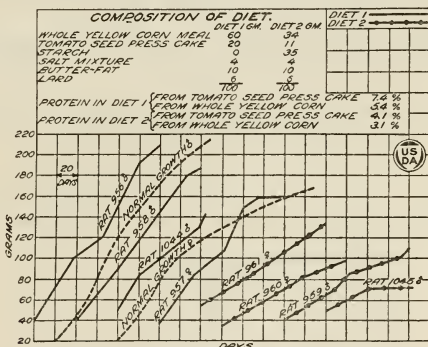 COMPOSITION OF DIET.
DIET 1
DIET 2
DIET 1 GM. DIET 2 GM.
WHOLE YELLOW CORN MEAL 60 34
TOMATO SEED PRESS CAKE 20 11
STARCH 0 35
SALT MIXTURE 4 4
BUTTER-FAT 10 10
LARD 6 6
100 100
PROTEIN IN DIET 1 {FROM TOMATO SEED PRESS CAKE 7.4 %
FROM WHOLE YELLOW CORN 5.4 %
PROTEIN IN DIET 2 {FROM TOMATO SEED PRESS CAKE 4.1 %
FROM WHOLE YELLOW CORN 3.1 %
US
DA
GRAMS
220
200
180
160
140
120
100
80
60
40
20
20
DAYS
RAT 956 ♂
NORMAL GROWTH ♂
RAT 958 ♂
RAT 1044 ♀
NORMAL GROWTH ♀
RAT 957 ♀
RAT 961 ♂
RAT 960 ♀
RAT 959 ♀
RAT 1045 ♀
DAYS